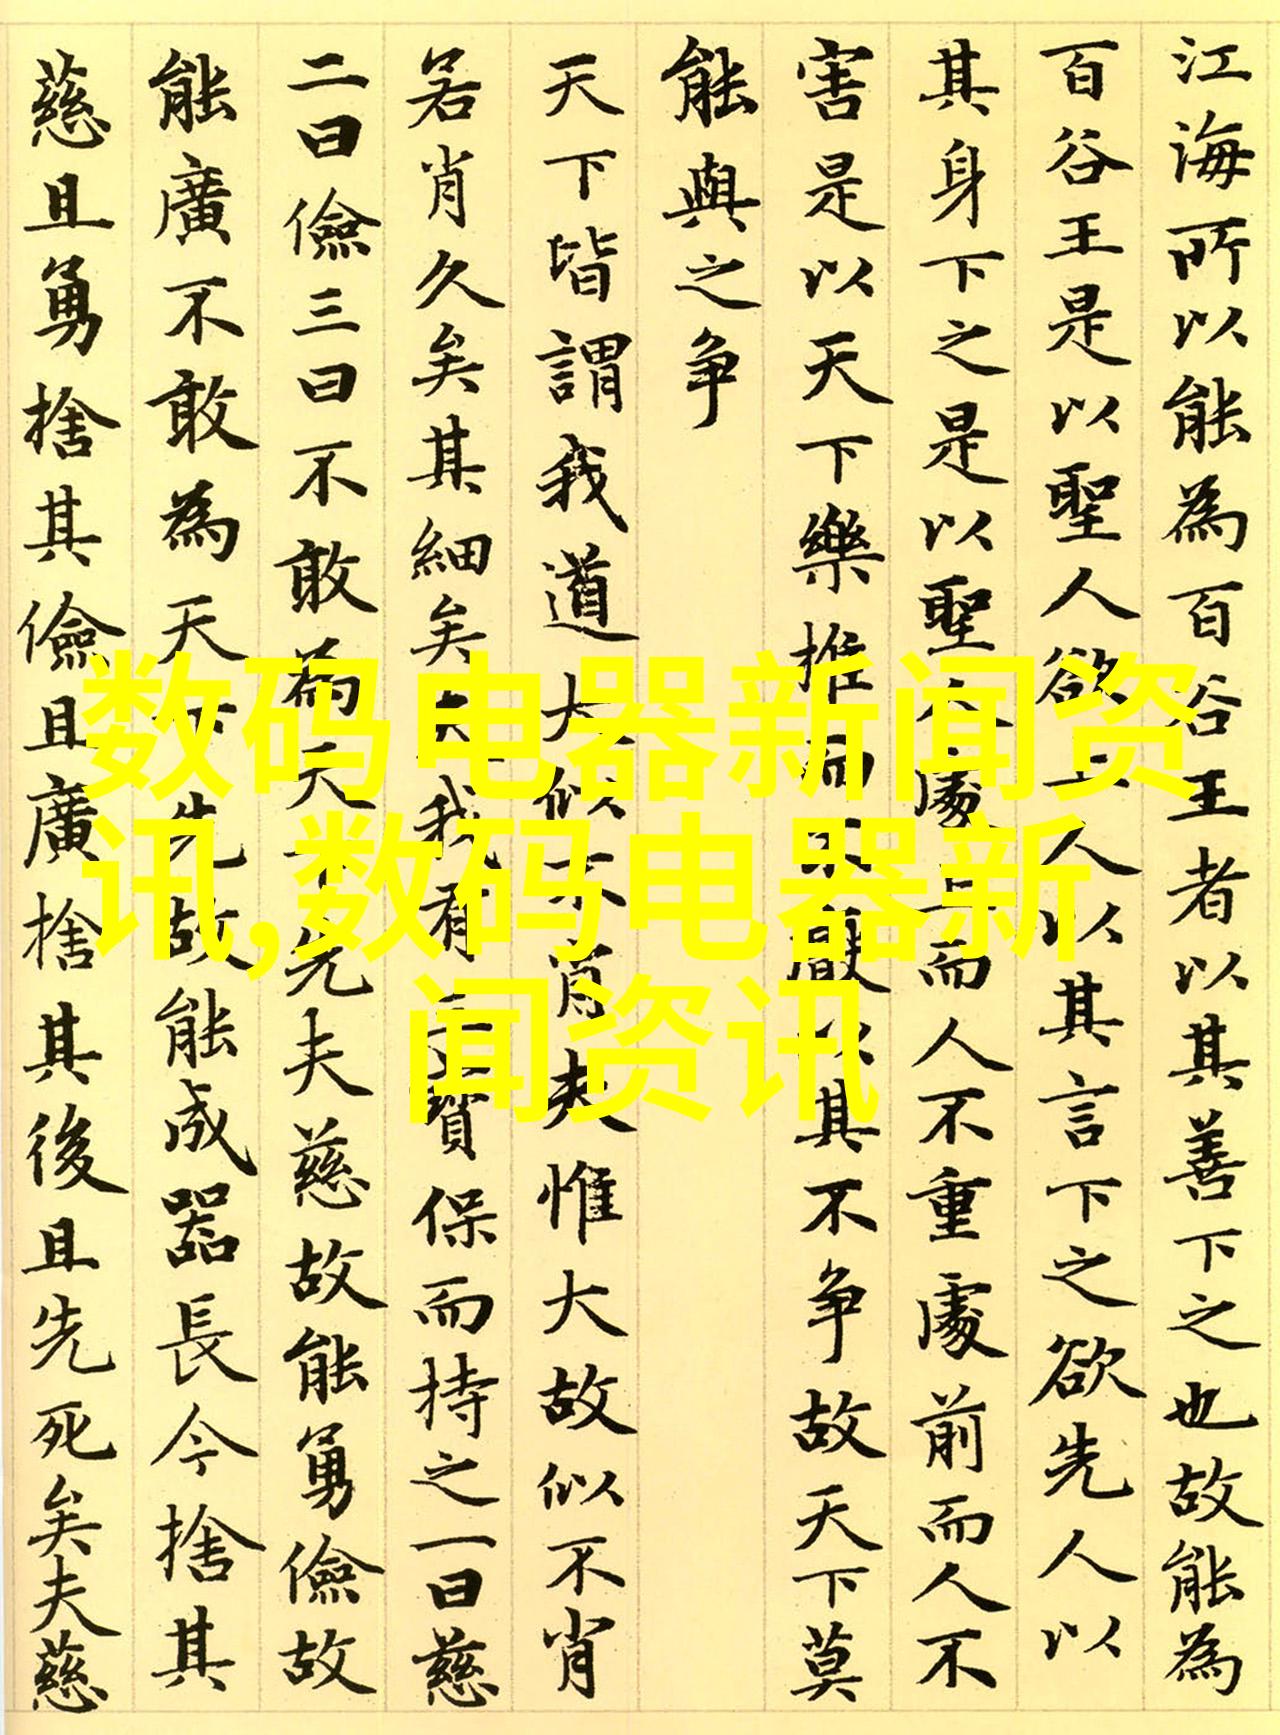 江海所以能為百谷王者以其善下之也故能為
百谷王是以聖人欲上人以其言下之欲先人以
其身下之是以聖人處上而人不重處前而人不
害是以天下樂推而不厭以其不争故天下莫
能與之争
天下皆謂我道大似不肖夫惟大故似不肖
若肖久矣其細矣夫我有三寶保而持之一曰慈
二曰儉三曰不敢為天下先夫慈故能勇儉故
能廣不敢為天下先故能成器長今捨其
慈且勇捨其儉且廣捨其後且先死矣夫慈
数码电器新闻资
讯,数码电器新
闻资讯